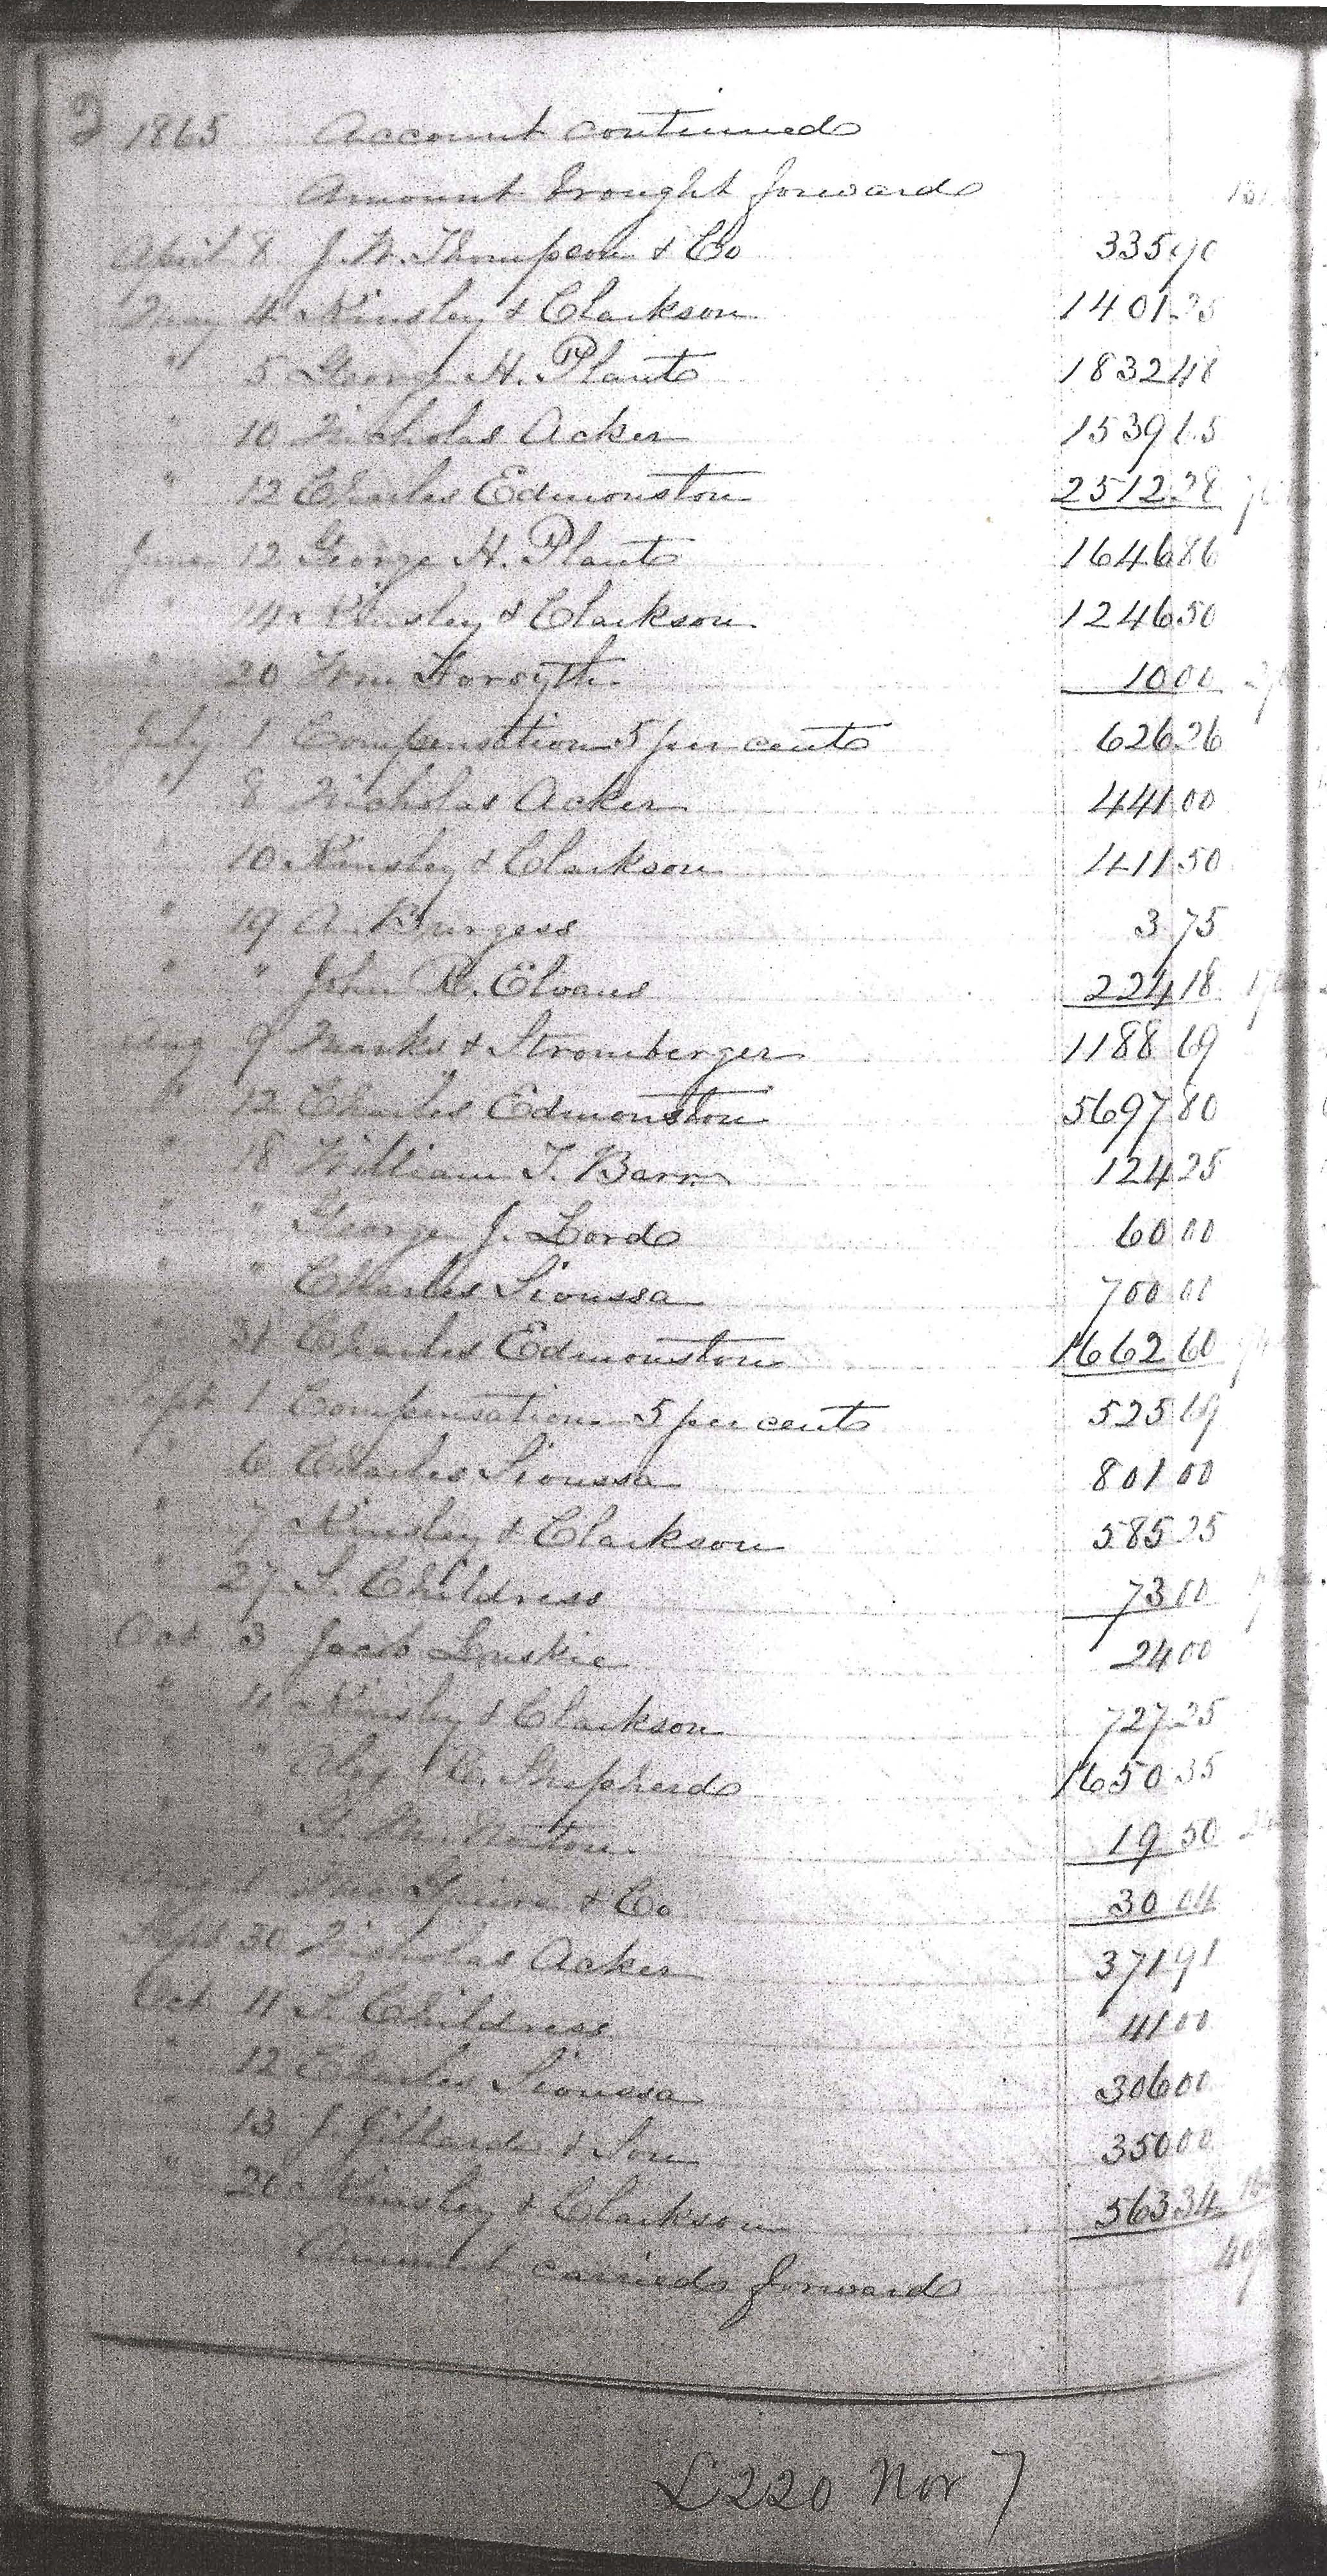 2 1865 Account continued
Amount brought forward
April 8 J. W. Thompson & Co 335 90
May 4 Kinsley & Clarkson 1401 25
" 5 George H. Plant 1832 48
" 10 Nicholas Acker 1539 65
" 12 Charles Edmonston 2512 28
June 12 George H. Plant 1646 86
" 14 Kinsley & Clarkson 1246 50
" 20 Wm Forsyth 10 00
July 1 Compensation 5 per cent 626 26
" 8 Nicholas Acker 441 00
" 10 Kinsley & Clarkson 411 50
" 19 A. Burgess 3 75
" " John R. Elvans 224 18
Aug 9 Marks & Stromberger 1188 69
" 12 Charles Edmonston 5697 80
" 18 William T. Barr 124 25
" " George J. Lord 60 00
" " Charles Sioussa 700 00
" 31 Charles Edmonston 1662 60
Sept 1 Compensation 5 per cent 525 69
" 6 Charles Sioussa 801 00
" 7 Kinsley & Clarkson 585 25
" 27 S. Childress 73 00
Oct 3 Jacob 24 00
" 4 Kinsley & Clarkson 727 25
" " Alex R. Shepherd 1650 35
" " 19 50
& Co 30 04
Sept 30 Nicholas Acker 371 91
Oct 11 S. Childress 41 00
" 12 Charles Sioussa 306 00
" 13 J. & Son 350 00
" 20 Kinsley & Clarkson 563 34
Amount carried forward
L220 Nov 7